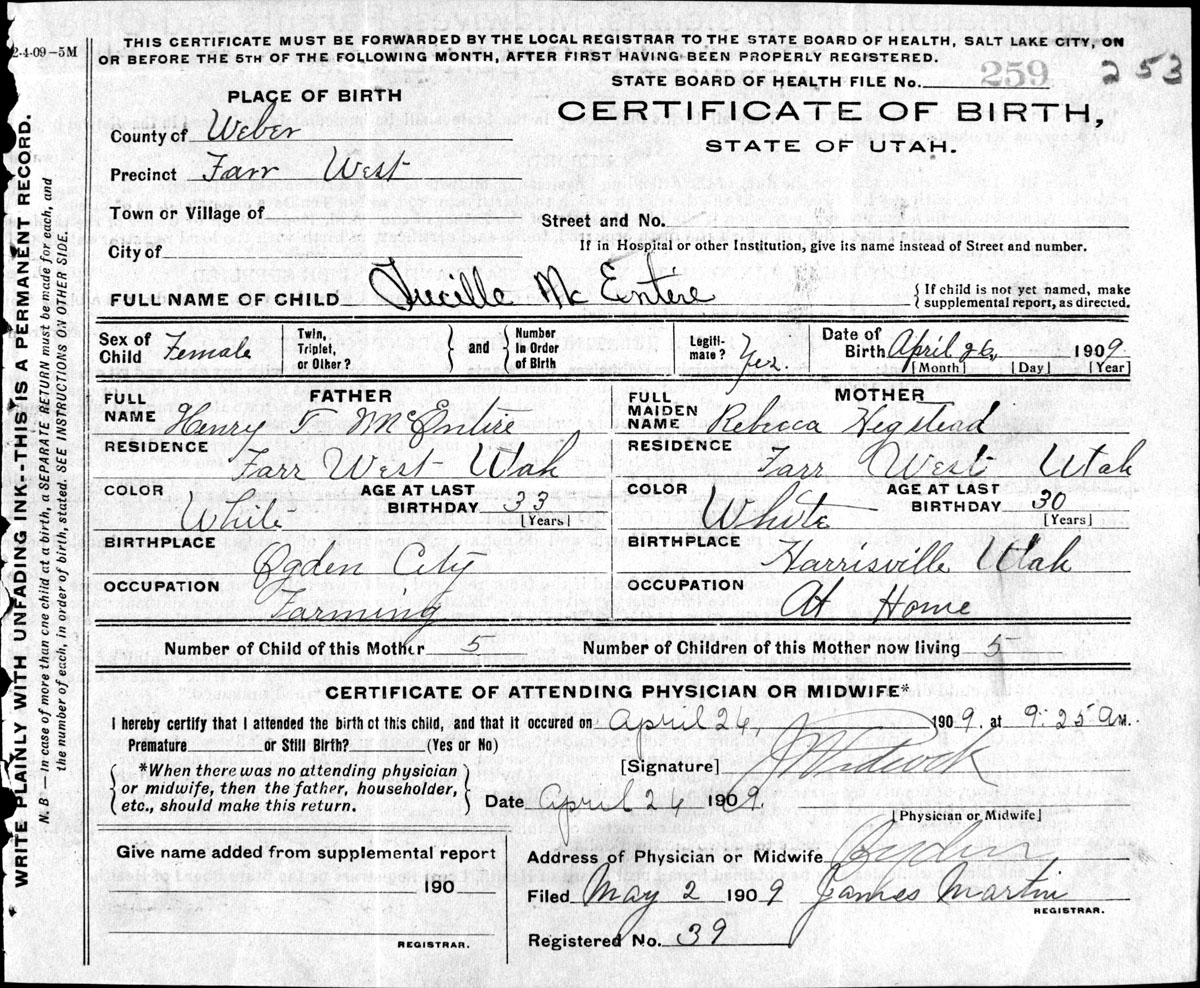 2-4-09-5M
THIS CERTIFICATE MUST BE FORWARDED BY THE LOCAL REGISTRAR TO THE STATE BOARD OF HEALTH, SALT LAKE CITY, ON
OR BEFORE THE 5TH OF THE FOLLOWING MONTH, AFTER FIRST HAVING BEEN PROPERLY REGISTERED.
STATE BOARD OF HEALTH FILE No. 259 253
PLACE OF BIRTH
CERTIFICATE OF BIRTH,
STATE OF UTAH.
County of Weber
Precinct Farr West
Town or Village of
Street and No.
City of
If in Hospital or other Institution, give its name instead of Street and number.
FULL NAME OF CHILD Lucille Mc Entire
If child is not yet named, make
supplemental report, as directed.
Sex of Child Female
Twin, Triplet, or Other?
and
Number In Order of Birth
Legiti-mate? Yes.
Date of Birth April 1909.
[Month] [Day] [Year]
FATHER
FULL NAME Henry F McEntire
RESIDENCE Farr West Utah
COLOR White
AGE AT LAST BIRTHDAY 33
[Years]
BIRTHPLACE Ogden City
OCCUPATION Farming
MOTHER
FULL MAIDEN NAME Rebecca Hegstead
RESIDENCE Farr West Utah
COLOR White
AGE AT LAST BIRTHDAY 30
[Years]
BIRTHPLACE Harrisville Utah
OCCUPATION At Home
Number of Child of this Mother 5 Number of Children of this Mother now living 5
CERTIFICATE OF ATTENDING PHYSICIAN OR MIDWIFE*
I hereby certify that I attended the birth of this child, and that it occured on April 24, 1909. at 9:25 AM.
Premature or Still Birth? (Yes or No)
*When there was no attending physician
or midwife, then the father, householder,
etc., should make this return.
[Signature]
Date April 24 1909.
[Physician or Midwife]
Give name added from supplemental report
190
REGISTRAR.
Address of Physician or Midwife Ogden
Filed May 2 1909 James Martin
REGISTRAR.
Registered No. 39
WRITE PLAINLY WITH UNFADING INK.--THIS IS A PERMANENT RECORD.
N. B—In case of more than one child at a birth, a SEPARATE RETURN must be made for each, and
the number of each, in order of birth, stated. SEE INSTRUCTIONS ON OTHER SIDE.